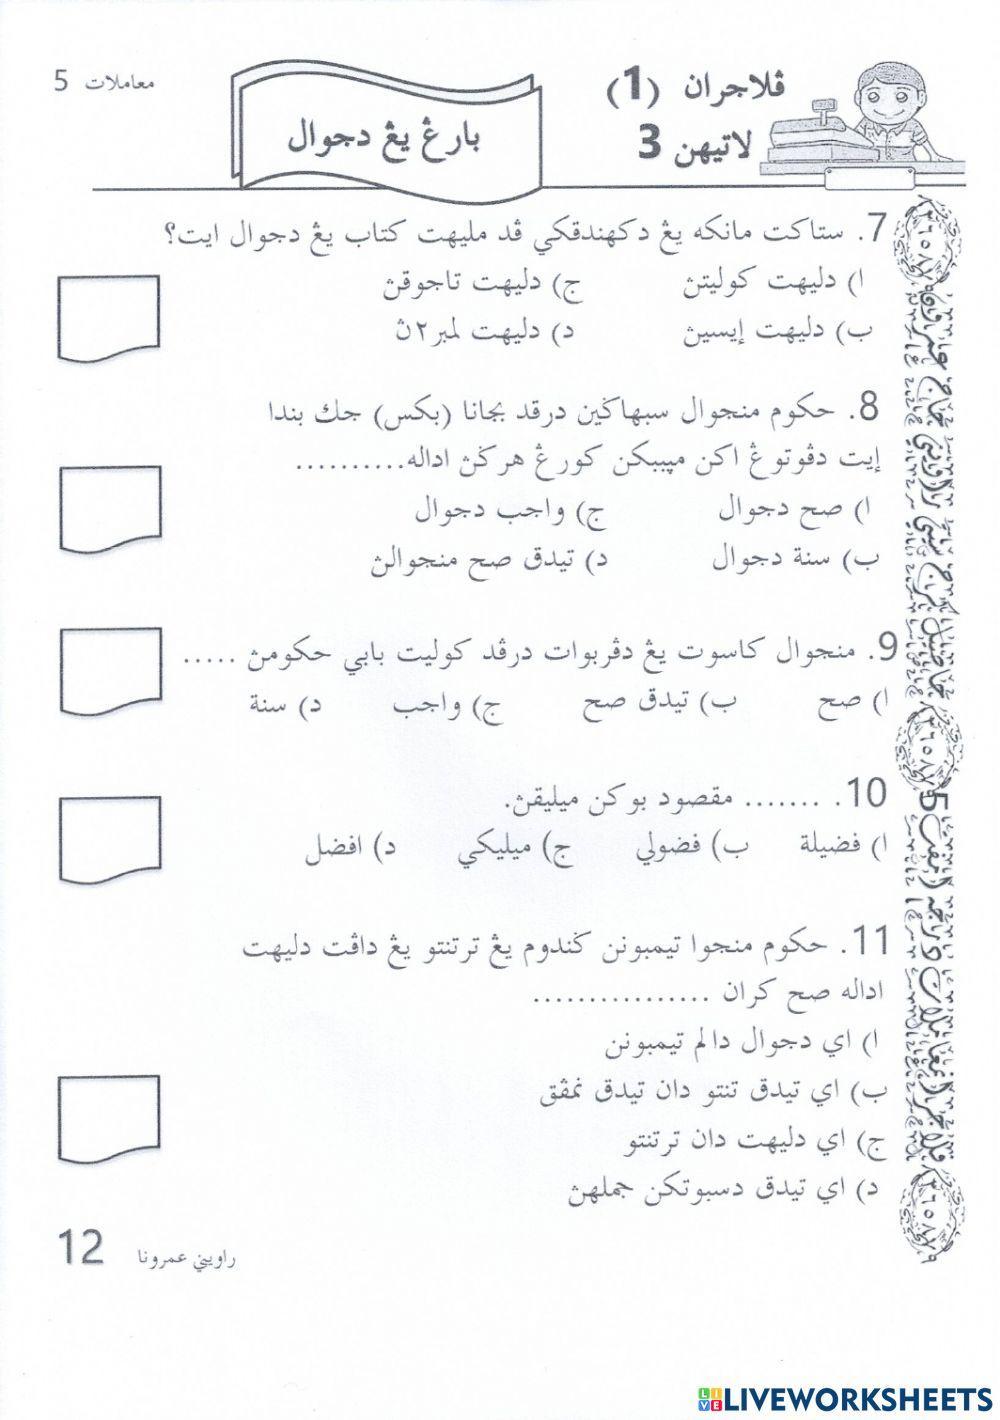 معاملات 5
ڤلاجران (1)
لاتيهن 3
بارڠ يڠ دجوال
7. ستاکت مانکه يڠ دکهندقکي ڤد مليهت کتاب يڠ دجوال ايت؟
ا) دليهت کوليتڽ ج) دليهت تاجوقڽ
ب) دليهت إيسيڽ د) دليهت لمبر٢ڽ
8. حکوم منجوال سبهاݢين درڤد بجانا (بکس) جك بندا
إيت دڤوتوڠ اکن مڽببکن کورڠ هرݢڽ اداله..........
ا) صح دجوال ج) واجب دجوال
ب) سنة دجوال د) تيدق صح منجوالڽ
9. منجوال کاسوت يڠ دڤربوات درڤد کوليت بابي حکومڽ .....
ا) صح ب) تيدق صح ج) واجب د) سنة
10. ....... مقصود بوکن ميليقڽ.
ا) فضيلة ب) فضولي ج) ميليکي د) افضل
11. حکوم منجوا تيمبونن ݢندوم يڠ ترتنتو يڠ داڤت دليهت
اداله صح کران ................
ا) اي دجوال دالم تيمبونن
ب) اي تيدق تنتو دان تيدق نمڤق
ج) اي دليهت دان ترتنتو
د) اي تيدق دسبوتکن جملهڽ
راويني عمرونا 12
LIVEWORKSHEETS